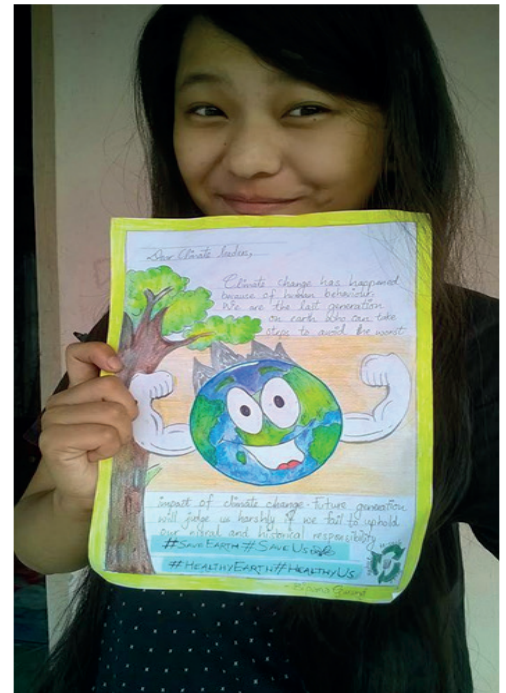 Dear Climate leaders,
Climate change has happened
because of human behaviour.
We are the last generation
on earth who can take
steps to avoid the worst
impact of climate change. Future generation
will judge us harshly if we fail to uphold
our moral and historical responsibility.
#SAVEEARTH #SAVEUS
#HEALTHYEARTH #HEALTHYUS
Gurung